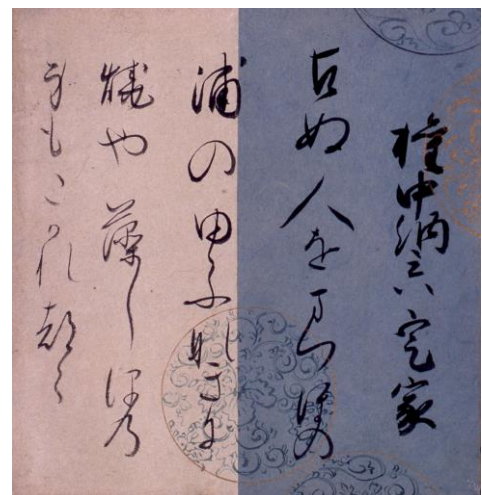 権中納言定家
古ぬ人をまつほの
浦のゆふなきに
焼や藻しほ乃
身もこかれつゝ